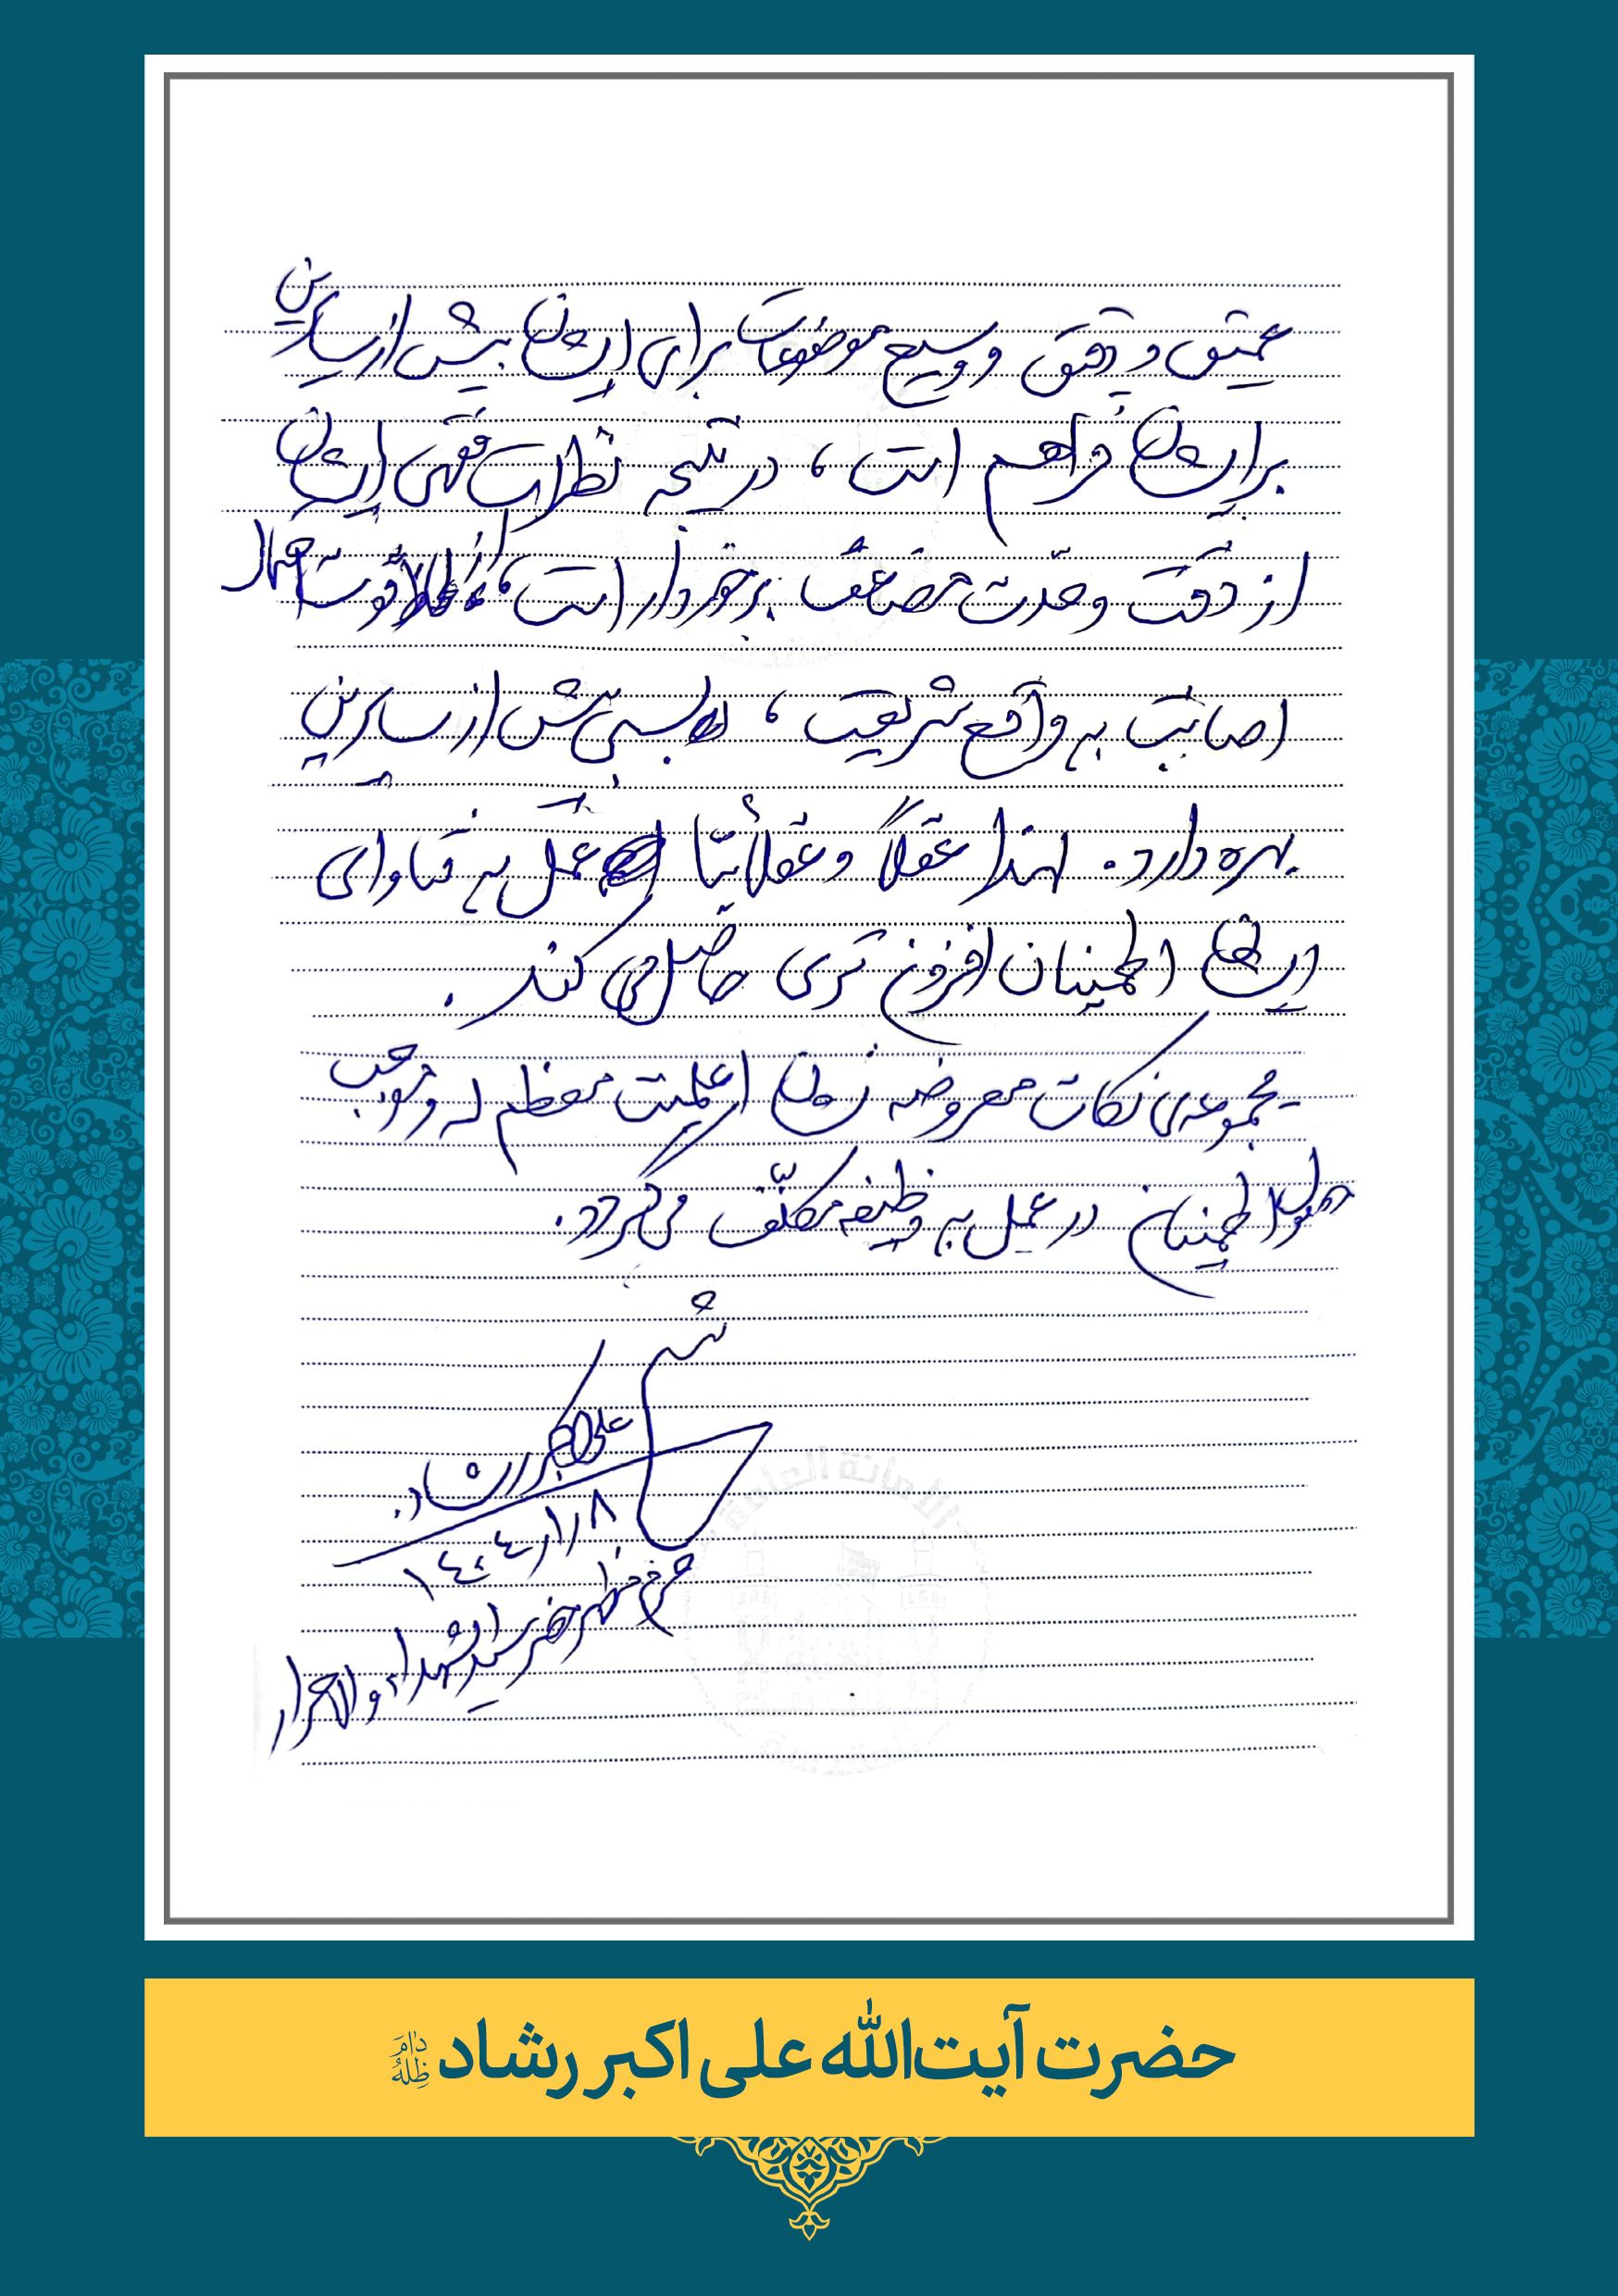 عمیق و دقیق و وسیع موضوعات برای ایشان بیش از سایرین
برایشان فراهم است، در نتیجه نظرات فقهی ایشان
از دقت و قدرت مضاعف برخوردار است، از قوت احتمال
اصابت به واقع شریعت، بسی بیش از سایرین
بهره دارد. لهذا عقلاً و عقلائیّاً عمل به فتاوای
ایشان اطمینان افزون تری حاصل می کند.
- مجموعه‌ی نکات معروضه نشان اعلمیت معظم له و موجب
حصول اطمینان در عمل به وظیفه مکلّف می گردد.
علی اکبر رشاد
۱۴۰۴/۱/۸
حضرت سیدالشهداء و الاحرار
حضرت آیت‌الله علی اکبر رشاد دامَ ظِلهُ